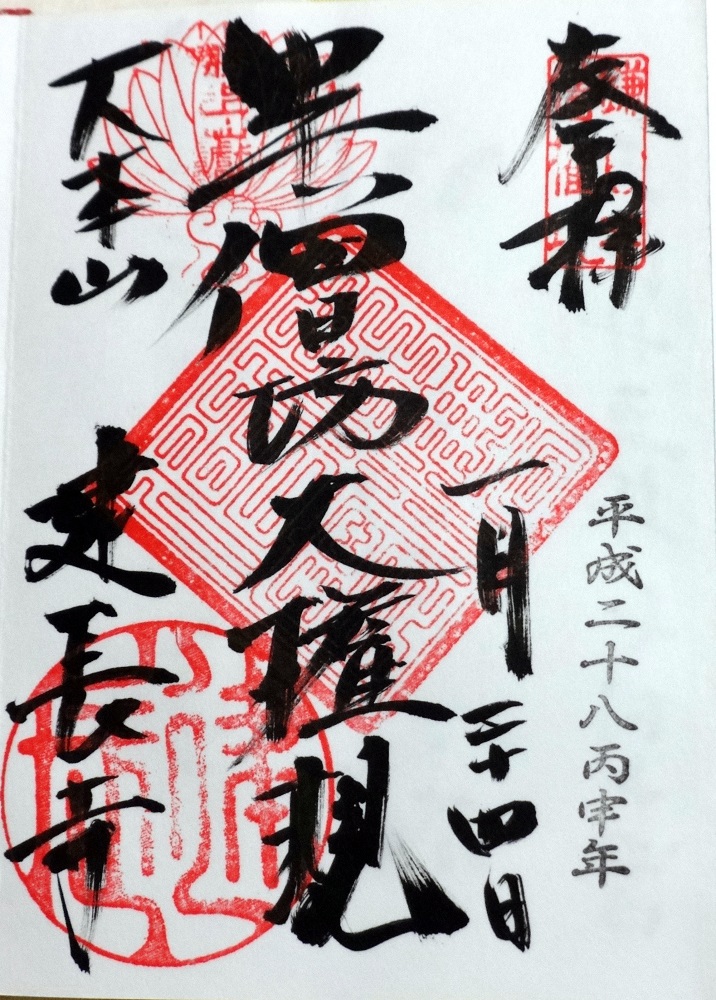 奉拝
平成二十八丙申年
一月二十四日
半僧坊大権現
大本山
建長寺